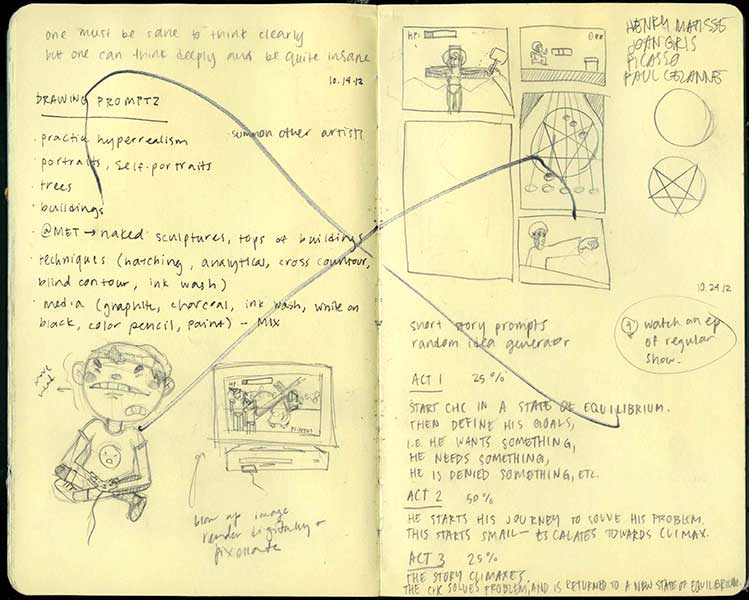 one must be sane to think clearly
but one can think deeply and be quite insane
10.19.12
DRAWING PROMPTZ
· practice hyperrealism
summon other artists
· portraits, self-portraits
· trees
· buildings
· @MET → naked sculptures, tops of buildings
· techniques (hatching, analytical, cross contour,
blind contour, ink wash)
· media (graphite, charcoal, ink wash, white on
black, color pencil, paint) - MIX
move
head
HP:
blow up image
render digitally +
pixellate
HP:
HENRY MATISSE
JOAN GRIS
PICASSO
PAUL CEZANNE
10.24.12
watch an ep
of regular
show.
short story prompts
random idea generator
ACT 1 25%
START CHC IN A STATE OF EQUILIBRIUM.
THEN DEFINE HIS GOALS,
I.E. HE WANTS SOMETHING,
HE NEEDS SOMETHING,
HE IS DENIED SOMETHING, ETC.
ACT 2 50%
HE STARTS HIS JOURNEY TO SOLVE HIS PROBLEM.
THIS STARTS SMALL — ESCALATES TOWARDS CLIMAX.
ACT 3 25%
THE STORY CLIMAXES.
THE CHC SOLVES PROBLEM, AND IS RETURNED TO A NEW STATE OF EQUILIBRIUM.